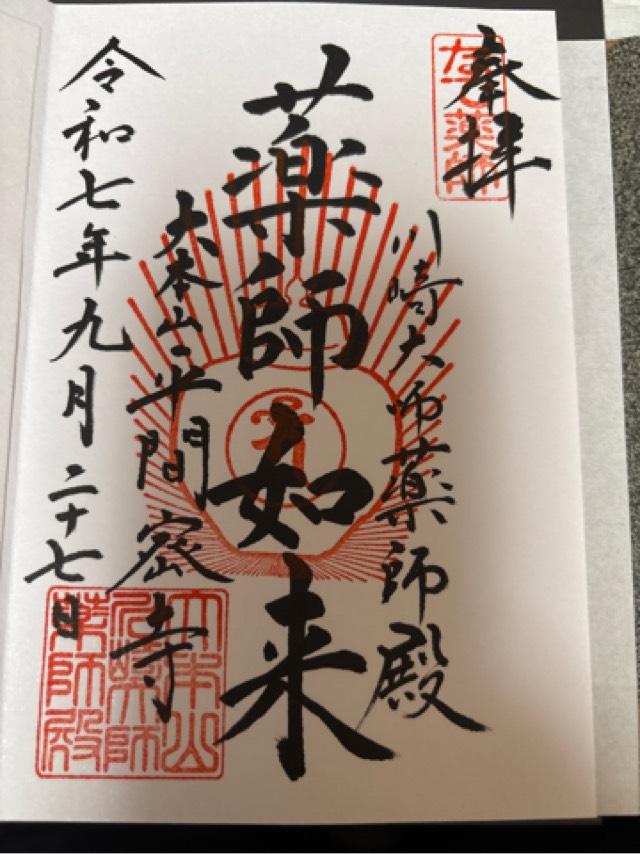 奉拝
なで薬師
川崎大師薬師殿
薬師如来
大本山平間密寺
令和七年九月二十七日
大本山
薬師殿